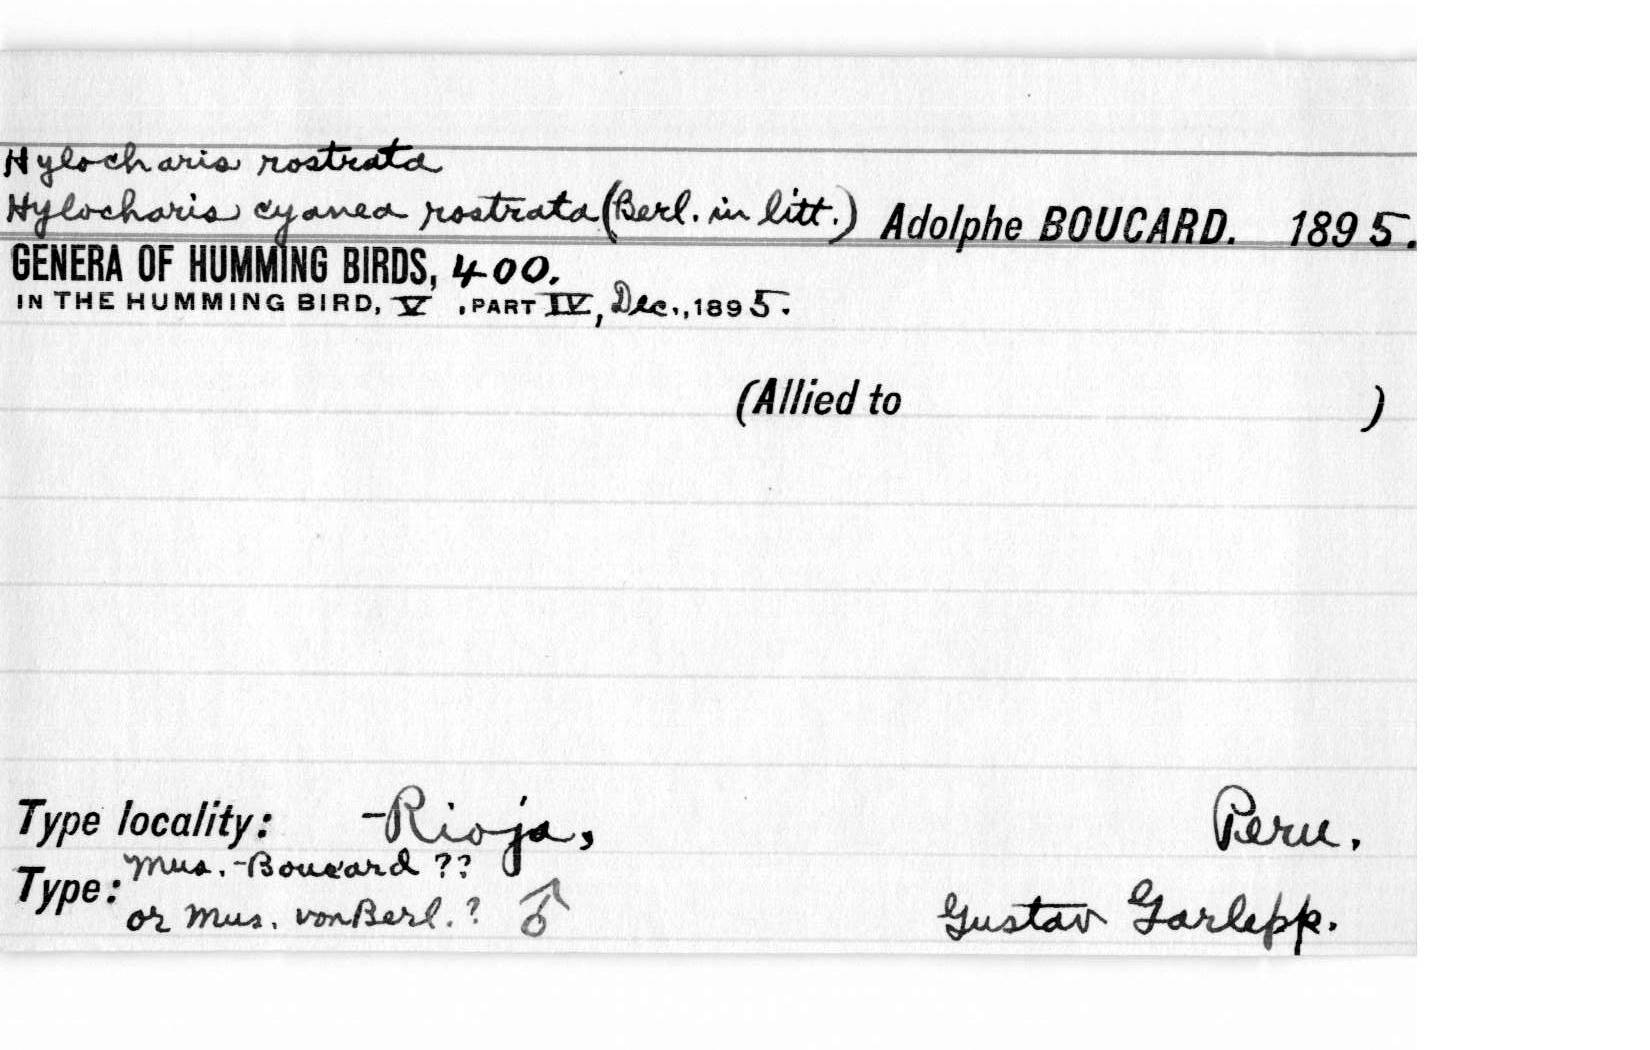 Hylocharis rostrata
Hylocharis cyanea rostrata (Berl. in litt.) Adolphe BOUCARD. 1895.
GENERA OF HUMMING BIRDS, 400.
IN THE HUMMING BIRD, V , PART IV, Dec., 1895.
(Allied to )
Type locality: Rioja, Peru.
Type: Mus. Boucard ??
or Mus. von Berl. ? ♂ Gustav Garlepp.